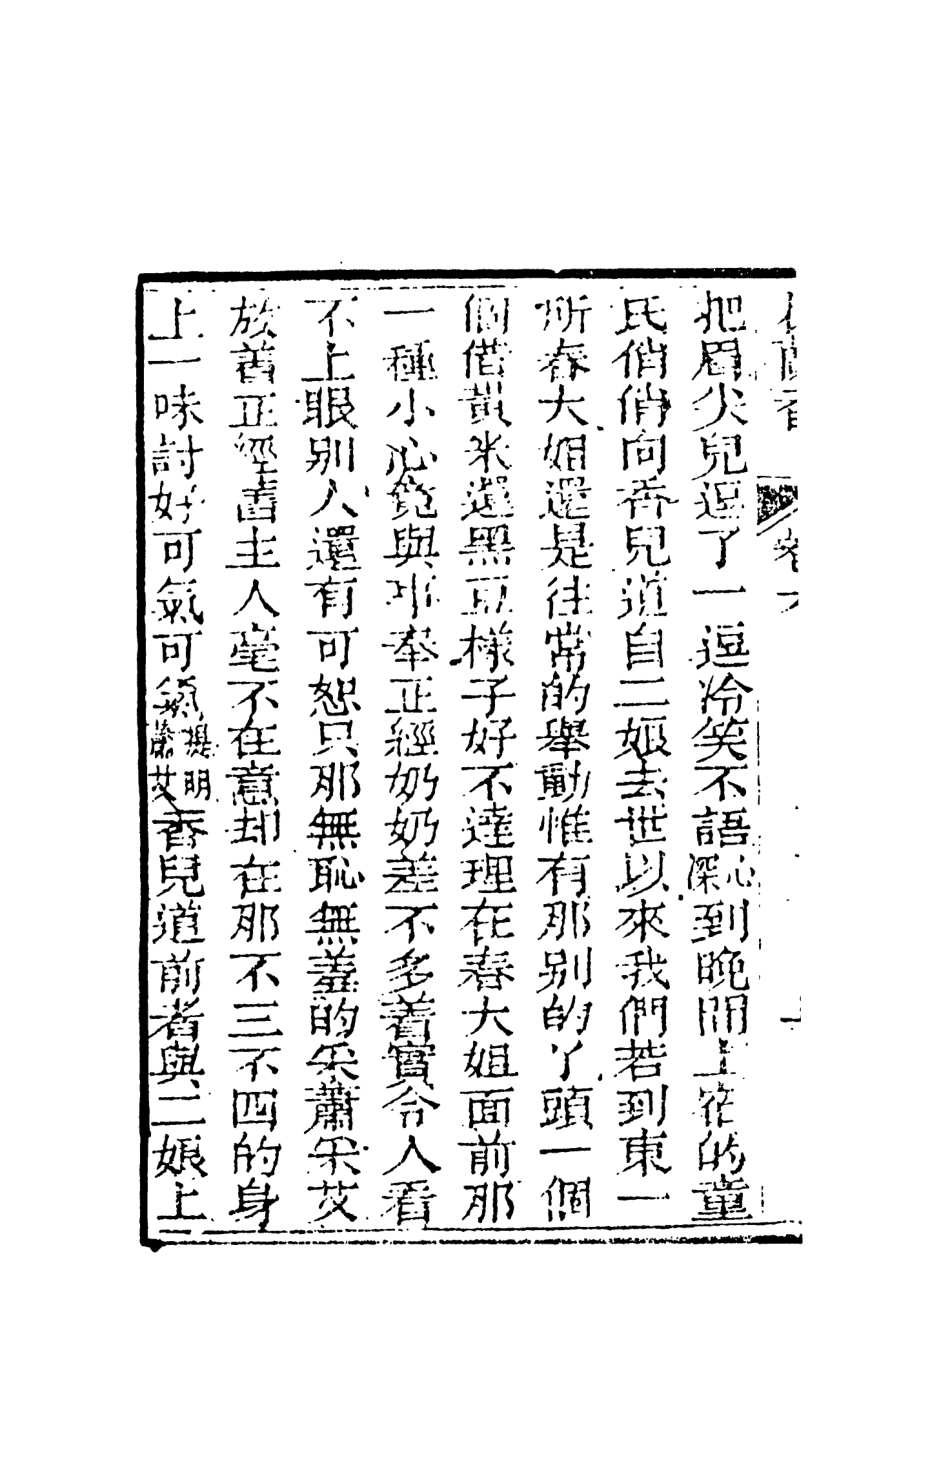 蘭香 卷六
把眉尖兒逗了一逗冷笑不語心深到晚間上宿的童
氏俏俏向香兒道自二娘去世以來我們若到東一
所春大姐還是往常的舉動惟有那别的丫頭一個
個借黄米還黑豆樣子好不達理在春大姐面前那
一種小心竟與事奉正經奶奶差不多着實令人看
不上眼别人還有可恕只那無恥無羞的采蕭采艾
放着正經舊主人毫不在意却在那不三不四的身
上一味討好可氣可
提明
蕭艾
香兒道前者與二娘上